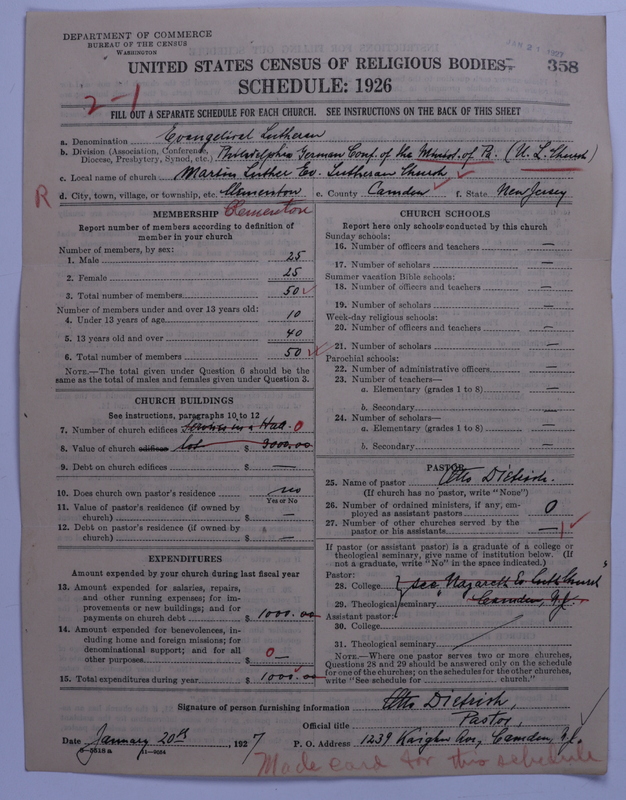 DEPARTMENT OF COMMERCE
BUREAU OF THE CENSUS
WASHINGTON
JAN 21 1927
UNITED STATES CENSUS OF RELIGIOUS BODIES
358
SCHEDULE: 1926
2-1
FILL OUT A SEPARATE SCHEDULE FOR EACH CHURCH. SEE INSTRUCTIONS ON THE BACK OF THIS SHEET
a. Denomination Evangelical Lutheran
b. Division (Association, Conference, Diocese, Presbytery, Synod, etc.) Philadelphia German Conf. of the Minist. of Pa. (U. L. Church)
c. Local name of church Martin Luther Ev. Lutheran Church
R d. City, town, village, or township, etc. Clementon e. County Camden f. State New Jersey
Clementon
MEMBERSHIP
Report number of members according to definition of member in your church
Number of members, by sex:
1. Male 25
2. Female 25
3. Total number of members 50
Number of members under and over 13 years old:
4. Under 13 years of age 10
5. 13 years old and over 40
6. Total number of members 50
NOTE.—The total given under Question 6 should be the same as the total of males and females given under Question 3.
CHURCH BUILDINGS
See instructions, paragraphs 10 to 12
7. Number of church edifices Services in a Hall. 0
8. Value of church edifices lot $ 3000.00
9. Debt on church edifices $ —
10. Does church own pastor's residence no
Yes or No
11. Value of pastor's residence (if owned by church) $ —
12. Debt on pastor's residence (if owned by church) $ —
EXPENDITURES
Amount expended by your church during last fiscal year
13. Amount expended for salaries, repairs, and other running expenses; for improvements or new buildings; and for payments on church debt $ 1000.00
14. Amount expended for benevolences, including home and foreign missions; for denominational support; and for all other purposes $ 0—
15. Total expenditures during year $ 1000.00
CHURCH SCHOOLS
Report here only schools conducted by this church
Sunday schools:
16. Number of officers and teachers —
17. Number of scholars —
Summer vacation Bible schools:
18. Number of officers and teachers —
19. Number of scholars —
Week-day religious schools:
20. Number of officers and teachers —
21. Number of scholars —
Parochial schools:
22. Number of administrative officers —
23. Number of teachers—
a. Elementary (grades 1 to 8) —
b. Secondary —
24. Number of scholars—
a. Elementary (grades 1 to 8) —
b. Secondary —
PASTOR
25. Name of pastor Otto Dietrich.
(If church has no pastor, write "None")
26. Number of ordained ministers, if any, employed as assistant pastors 0
27. Number of other churches served by the pastor or his assistants — 1
If pastor (or assistant pastor) is a graduate of a college or theological seminary, give name of institution below. (If not a graduate, write "No" in the space indicated.)
Pastor:
28. College see "Nazareth Ev Luth Church"
29. Theological seminary Camden, N.J.
Assistant pastor:
30. College
31. Theological seminary
NOTE.—Where one pastor serves two or more churches, Questions 28 and 29 should be answered only on the schedule for one of the churches; on the schedules for the other churches, write "See schedule for church."
Signature of person furnishing information Otto Dietrich,
Official title Pastor,
Date January 20th, 1927
P. O. Address 1239 Kaighn Ave, Camden, N.J.
8-5618 a
Made card for this schedule